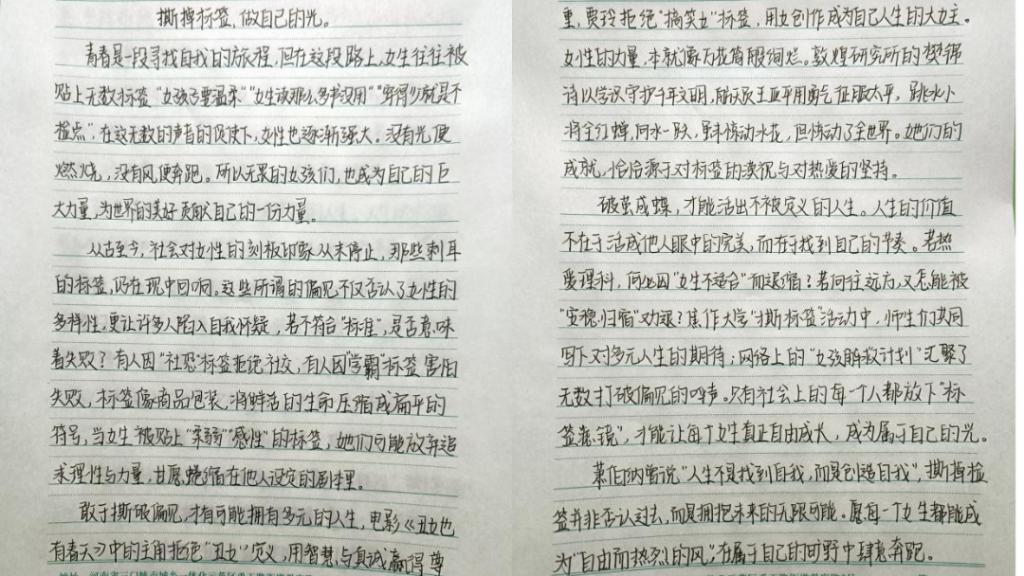 撕掉标签,做自己的光。
青春是一段寻找自我的旅程,但在这段路上,女生往往被
贴上无数标签“女孩子要温柔”“女生读那么多书没用”“穿得少就是不
检点”.在这无数的声音的促使下,女性也逐渐强大。没有光,便
燃烧,没有风,便奔跑。所以无畏的女孩们,也成为自己的巨
大力量,为世界的美好贡献自己的一份力量。
从古至今,社会对女性的刻板印象从未停止,那些刺耳
的标签,仍在现中回响。这些所谓的偏见不仅否认了女性的
多样性,更让许多人陷入自我怀疑,若不符合“标准”,是否意味
着失败?有人因“社恐”标签拒绝社交,有人因“学霸”标签害怕
失败,标签像商品包装,将鲜活的生命压缩成扁平的
符号,当女生被贴上“柔弱”“感性”的标签,她们可能放弃追
求理性与力量,甘愿蜷缩在他人设定的剧本里。
敢于撕破偏见,才有可能拥有多元的人生,电影《丑女也
有春天》中的主角拒绝“丑女”定义,用智慧与真诚赢得尊
重,贾玲拒绝“搞笑女”标签,用女创作成为自己人生的大女主。
女性的力量,本就像万花筒般绚烂。敦煌研究所的樊锦
诗以学识守护千年文明,航天员王亚平用勇气征服太平,跳水小
将全红婵,向水一跃,虽未惊动水花,但惊动了全世界。她们的
成就,恰恰源于对标签的漠视与对热爱的坚持。
破茧成蝶,才能活出不被定义的人生。人生的价值
不在于活成他人眼中的完美,而在于找到自己的节奏。若热
爱理科,何必因“女生不适合”而退缩?若向往远方,又怎能被
“安稳归宿”劝退?焦作大学“撕标签”活动中,师生们共同
写下对多元人生的期待;网络上的“女孩解救计划”汇聚了
无数打破偏见的呼声。只有社会上的每一个人都放下“标
签滤镜”,才能让每个女生真正自由成长,成为属于自己的光。
萧伯纳曾说“人生不是找到自我,而是创造自我”,撕掉标
签并非否认过去,而是拥抱未来的无限可能。愿每一女生都能成
为“自由而热烈的风”,在属于自己的旷野中肆意奔跑。